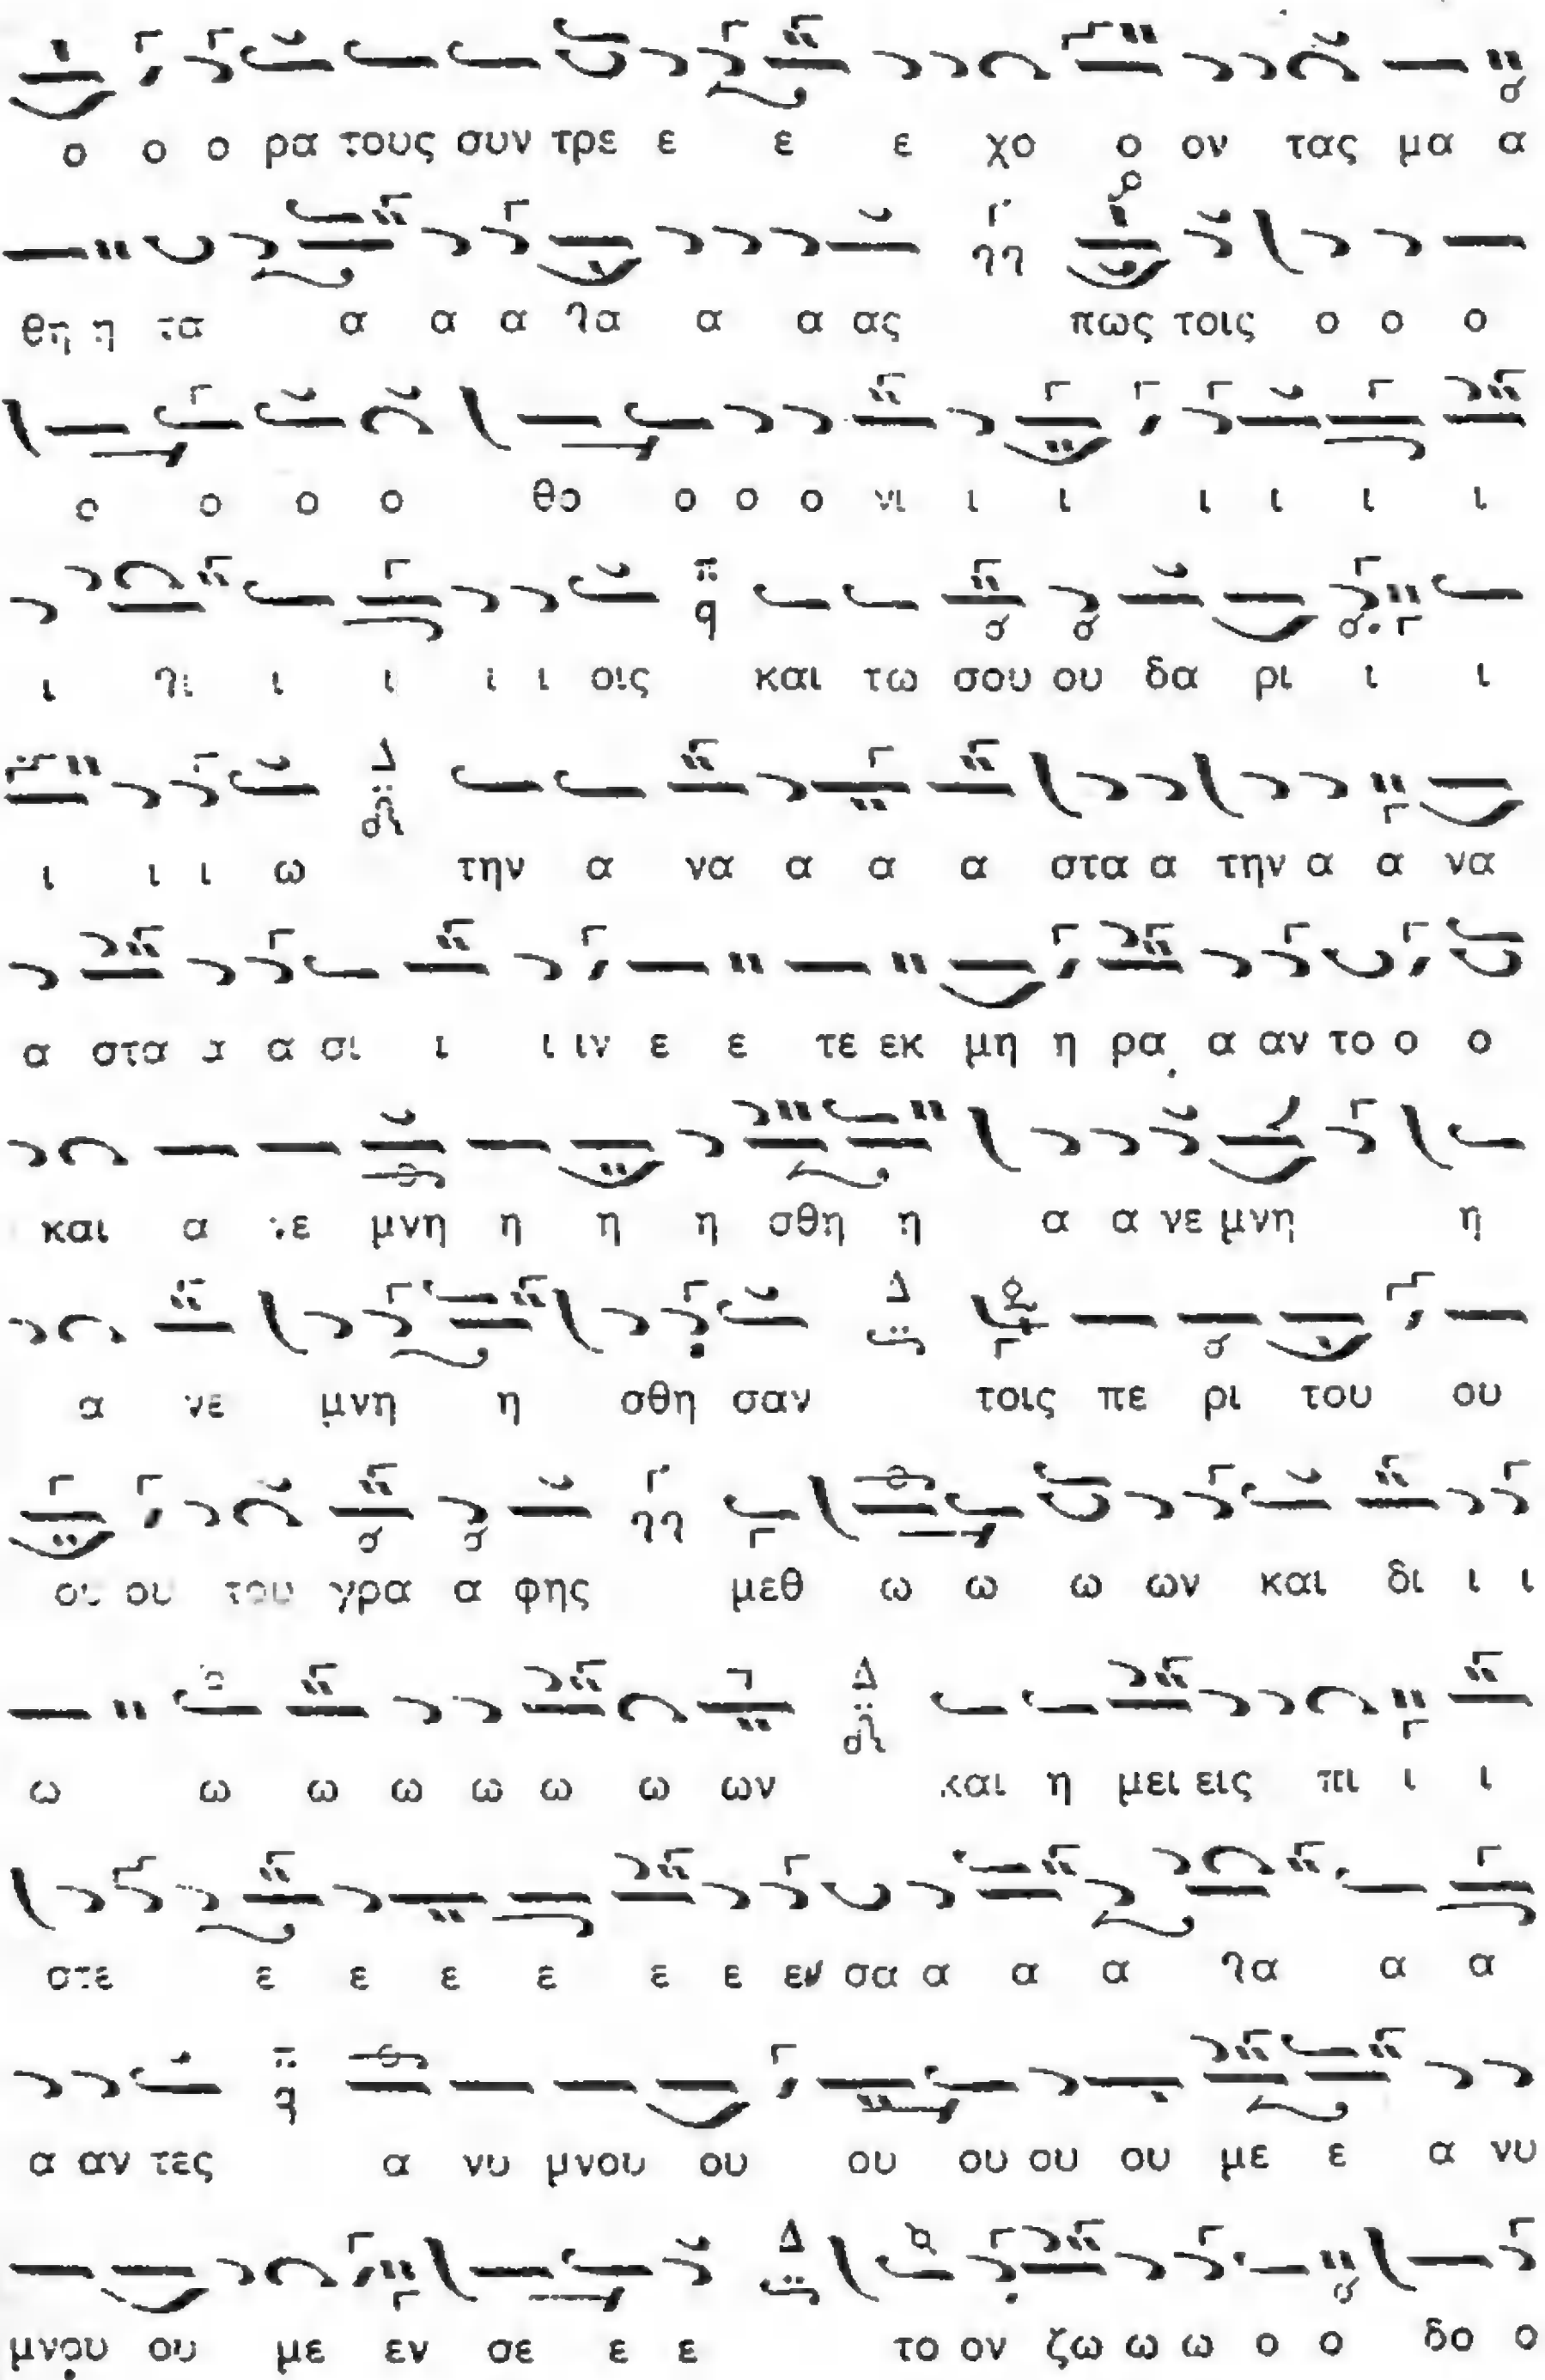 ο ο ο ρα τους συν τρε ε ε ε χο ο ον τας μα α
θη η τα α α α γα α α ας πως τοις ο ο ο
ο ο ο ο θο ο ο ο νι ι ι ι ι ι ι
ι γι ι ι ι ι οις και τω σου ου δα ρι ι ι
ι ι ι ω την α να α α α στα α την α α να
α στα α α σι ι ι ιν ε ε τε εκ μη η ρα α αν το ο ο
και α νε μνη η η η σθη η α α νε μνη η
α νε μνη η σθη σαν τοις πε ρι του ου
ου ου του γρα α φης μεθ ω ω ω ων και δι ι ι
ω ω ω ω ω ω ω ων και η μει εις πι ι ι
στε ε ε ε ε ε ε εν σα α α α γα α α
α αν τες α νυ μνου ου ου ου ου ου με ε α νυ
μνου ου με εν σε ε ε το ον ζω ω ω ο ο δο ο